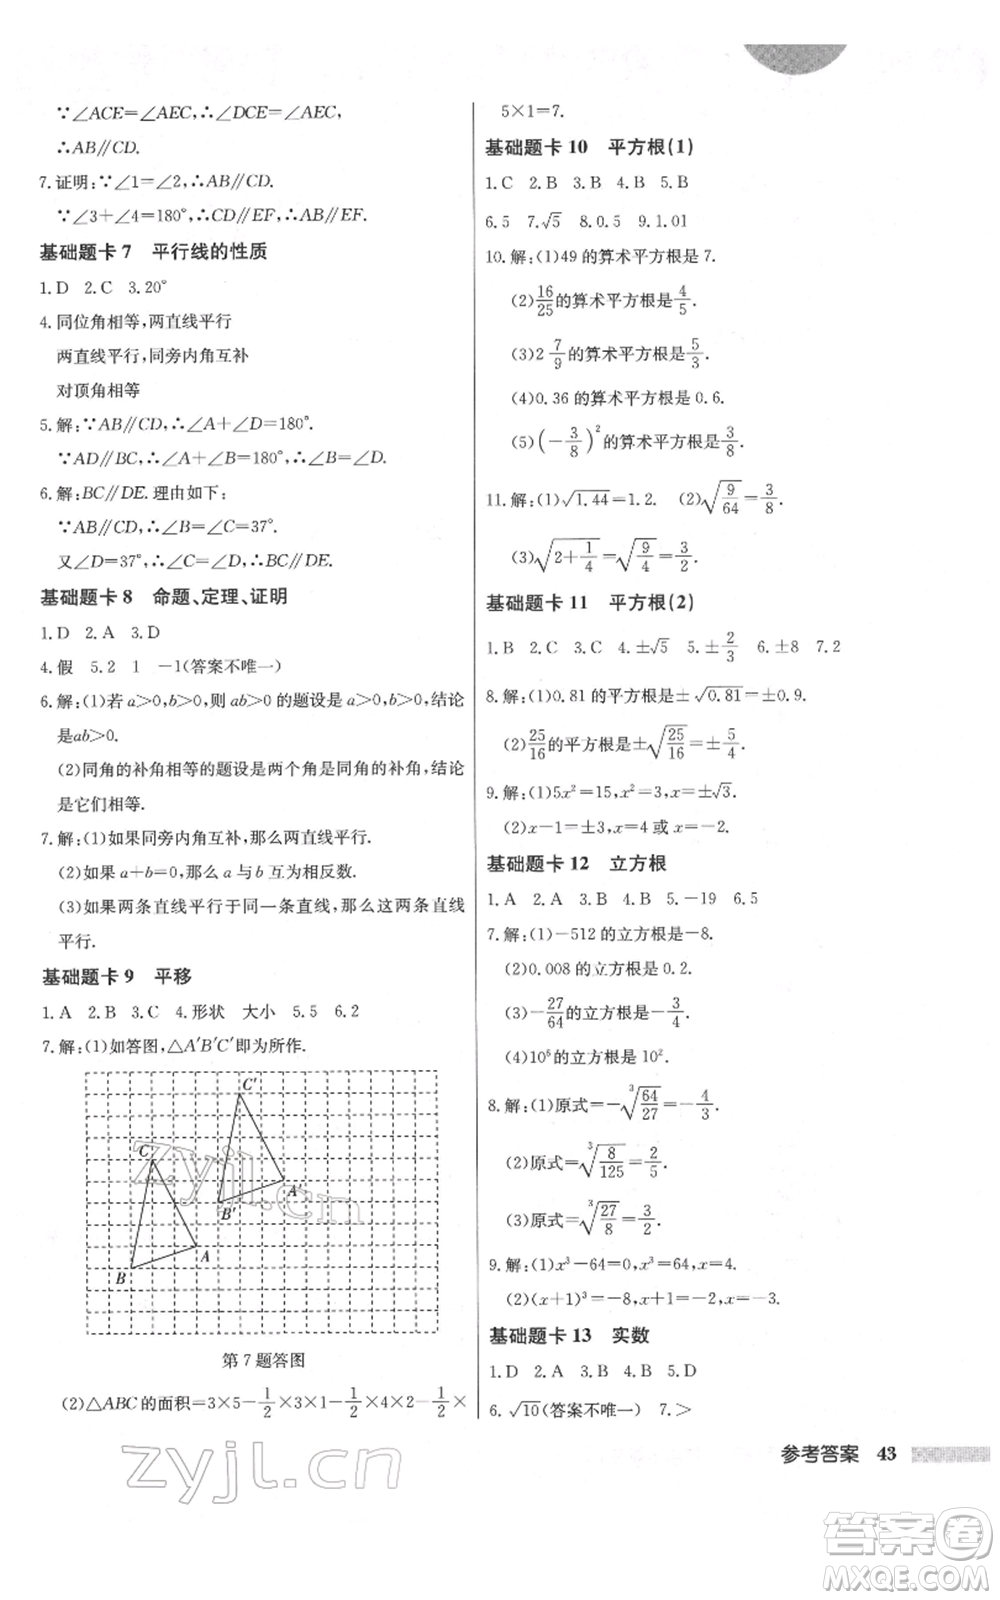 ∵∠ACE=∠AEC,∴∠DCE=∠AEC,
∴AB∥CD.
7.证明:∵∠1=∠2,∴AB∥CD.
∵∠3+∠4=180°,∴CD∥EF,∴AB∥EF.
基础题卡 7 平行线的性质
1.D 2.C 3.20°
4.同位角相等,两直线平行
两直线平行,同旁内角互补
对顶角相等
5.解:∵AB∥CD,∴∠A+∠D=180°.
∵AD∥BC,∴∠A+∠B=180°,∴∠B=∠D.
6.解:BC∥DE.理由如下:
∵AB∥CD,∴∠B=∠C=37°.
又∠D=37°,∴∠C=∠D,∴BC∥DE.
基础题卡 8 命题、定理、证明
1.D 2.A 3.D
4.假 5.2 1 −1(答案不唯一)
6.解:(1)若 a>0,b>0,则 ab>0 的题设是a>0,b>0,结论
是ab>0.
(2)同角的补角相等的题设是两个角是同角的补角,结论
是它们相等.
7.解:(1)如果同旁内角互补,那么两直线平行.
(2)如果 a+b=0,那么 a 与 b 互为相反数.
(3)如果两条直线平行于同一条直线,那么这两条直线
平行.
基础题卡 9 平移
1.A 2.B 3.C 4.形状 大小 5.5 6.2
7.解:(1)如答图,△A′B′C′即为所作.
C′
C
A′
B′
A
B
zyjl.cn
第 7 题答图
(2)△ABC的面积=3×5−1/2×3×1−1/2×4×2−1/2×
zyjl.cn
5×1=7.
基础题卡 10 平方根(1)
1.C 2.B 3.B 4.B 5.B
6.5 7.√5 8.0.5 9.1.01
10.解:(1)49 的算术平方根是 7.
(2)16/25的算术平方根是4/5.
(3)2 7/9的算术平方根是5/3.
(4)0.36 的算术平方根是 0.6.
(5)(−3/8)²的算术平方根是3/8.
11.解:(1)√1.44=1.2. (2)√(9/64)=3/8.
(3)√(2+1/4)=√(9/4)=3/2.
基础题卡 11 平方根(2)
1.B 2.C 3.C 4.±√5 5.±2/3 6.±8 7.2
8.解:(1)0.81 的平方根是±√0.81=±0.9.
(2)25/16的平方根是±√(25/16)=±5/4.
9.解:(1)5x²=15,x²=3,x=±√3.
(2)x−1=±3,x=4 或 x=−2.
基础题卡 12 立方根
1.A 2.A 3.A 4.B 5.−19 6.5
7.解:(1)−512 的立方根是−8.
(2)0.008 的立方根是 0.2.
(3)−27/64的立方根是−3/4.
(4)10⁶的立方根是 10².
8.解:(1)原式=−∛(64/27)=−4/3.
(2)原式=∛(8/125)=2/5.
(3)原式=∛(27/8)=3/2.
9.解:(1)x³−64=0,x³=64,x=4.
(2)(x+1)³=−8,x+1=−2,x=−3.
基础题卡 13 实数
1.D 2.A 3.A 4.B 5.D
6.√10(答案不唯一) 7.>
参考答案 43
答案卷
MXQE.COM